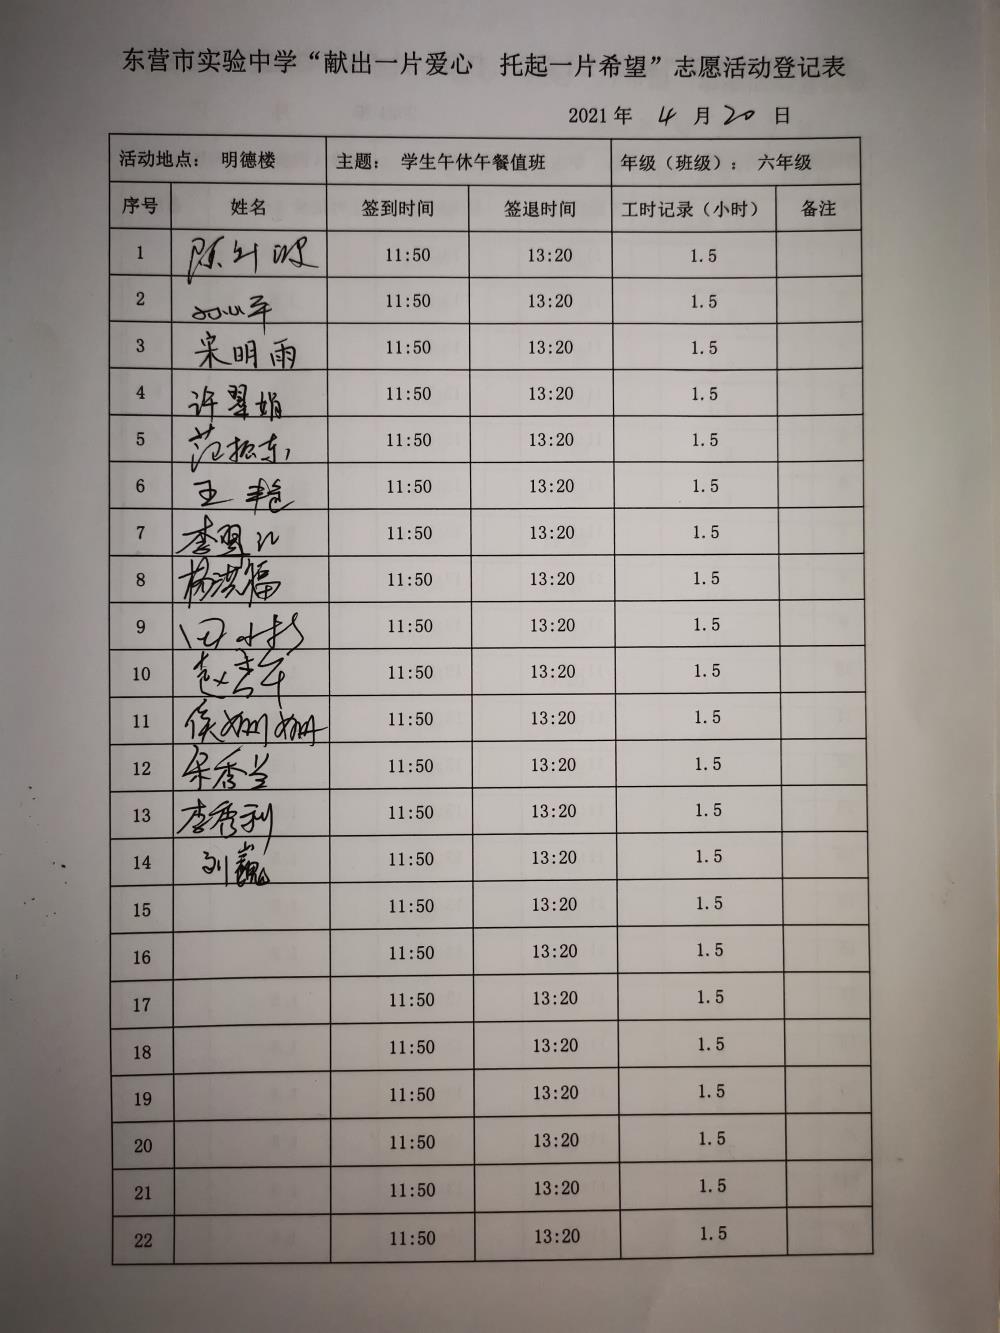 东营市实验中学“献出一片爱心 托起一片希望”志愿活动登记表
2021 年 4 月 20 日
活动地点： 明德楼 主题： 学生午休午餐值班 年级（班级）： 六年级
序号 姓名 签到时间 签退时间 工时记录（小时） 备注
1 11:50 13:20 1.5
2 11:50 13:20 1.5
3 宋明雨 11:50 13:20 1.5
4 许翠娟 11:50 13:20 1.5
5 范振东 11:50 13:20 1.5
6 王艳 11:50 13:20 1.5
7 李 11:50 13:20 1.5
8 杨洪福 11:50 13:20 1.5
9 田 11:50 13:20 1.5
10 赵 11:50 13:20 1.5
11 侯姗姗 11:50 13:20 1.5
12 秀兰 11:50 13:20 1.5
13 李秀利 11:50 13:20 1.5
14 刘巍 11:50 13:20 1.5
15 11:50 13:20 1.5
16 11:50 13:20 1.5
17 11:50 13:20 1.5
18 11:50 13:20 1.5
19 11:50 13:20 1.5
20 11:50 13:20 1.5
21 11:50 13:20 1.5
22 11:50 13:20 1.5